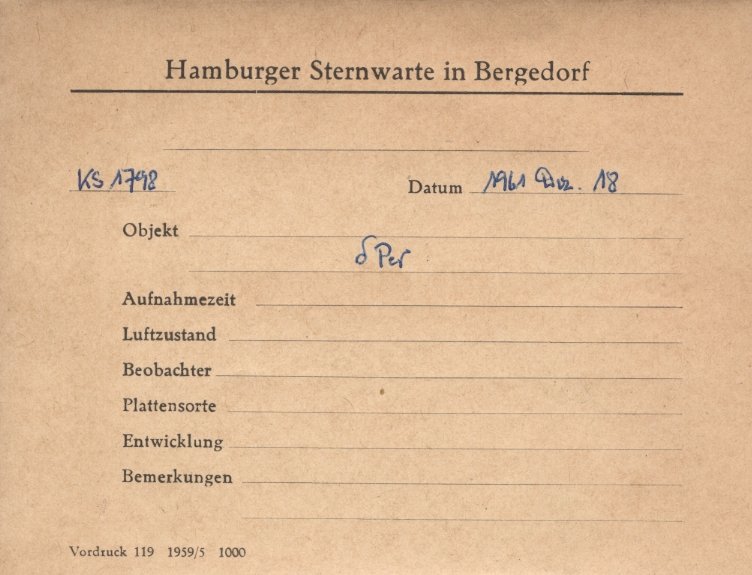 Hamburger Sternwarte in Bergedorf
KS 1798 Datum 1961 Dez. 18
Objekt
δ Per
Aufnahmezeit
Luftzustand
Beobachter
Plattensorte
Entwicklung
Bemerkungen
Vordruck 119 1959/5 1000